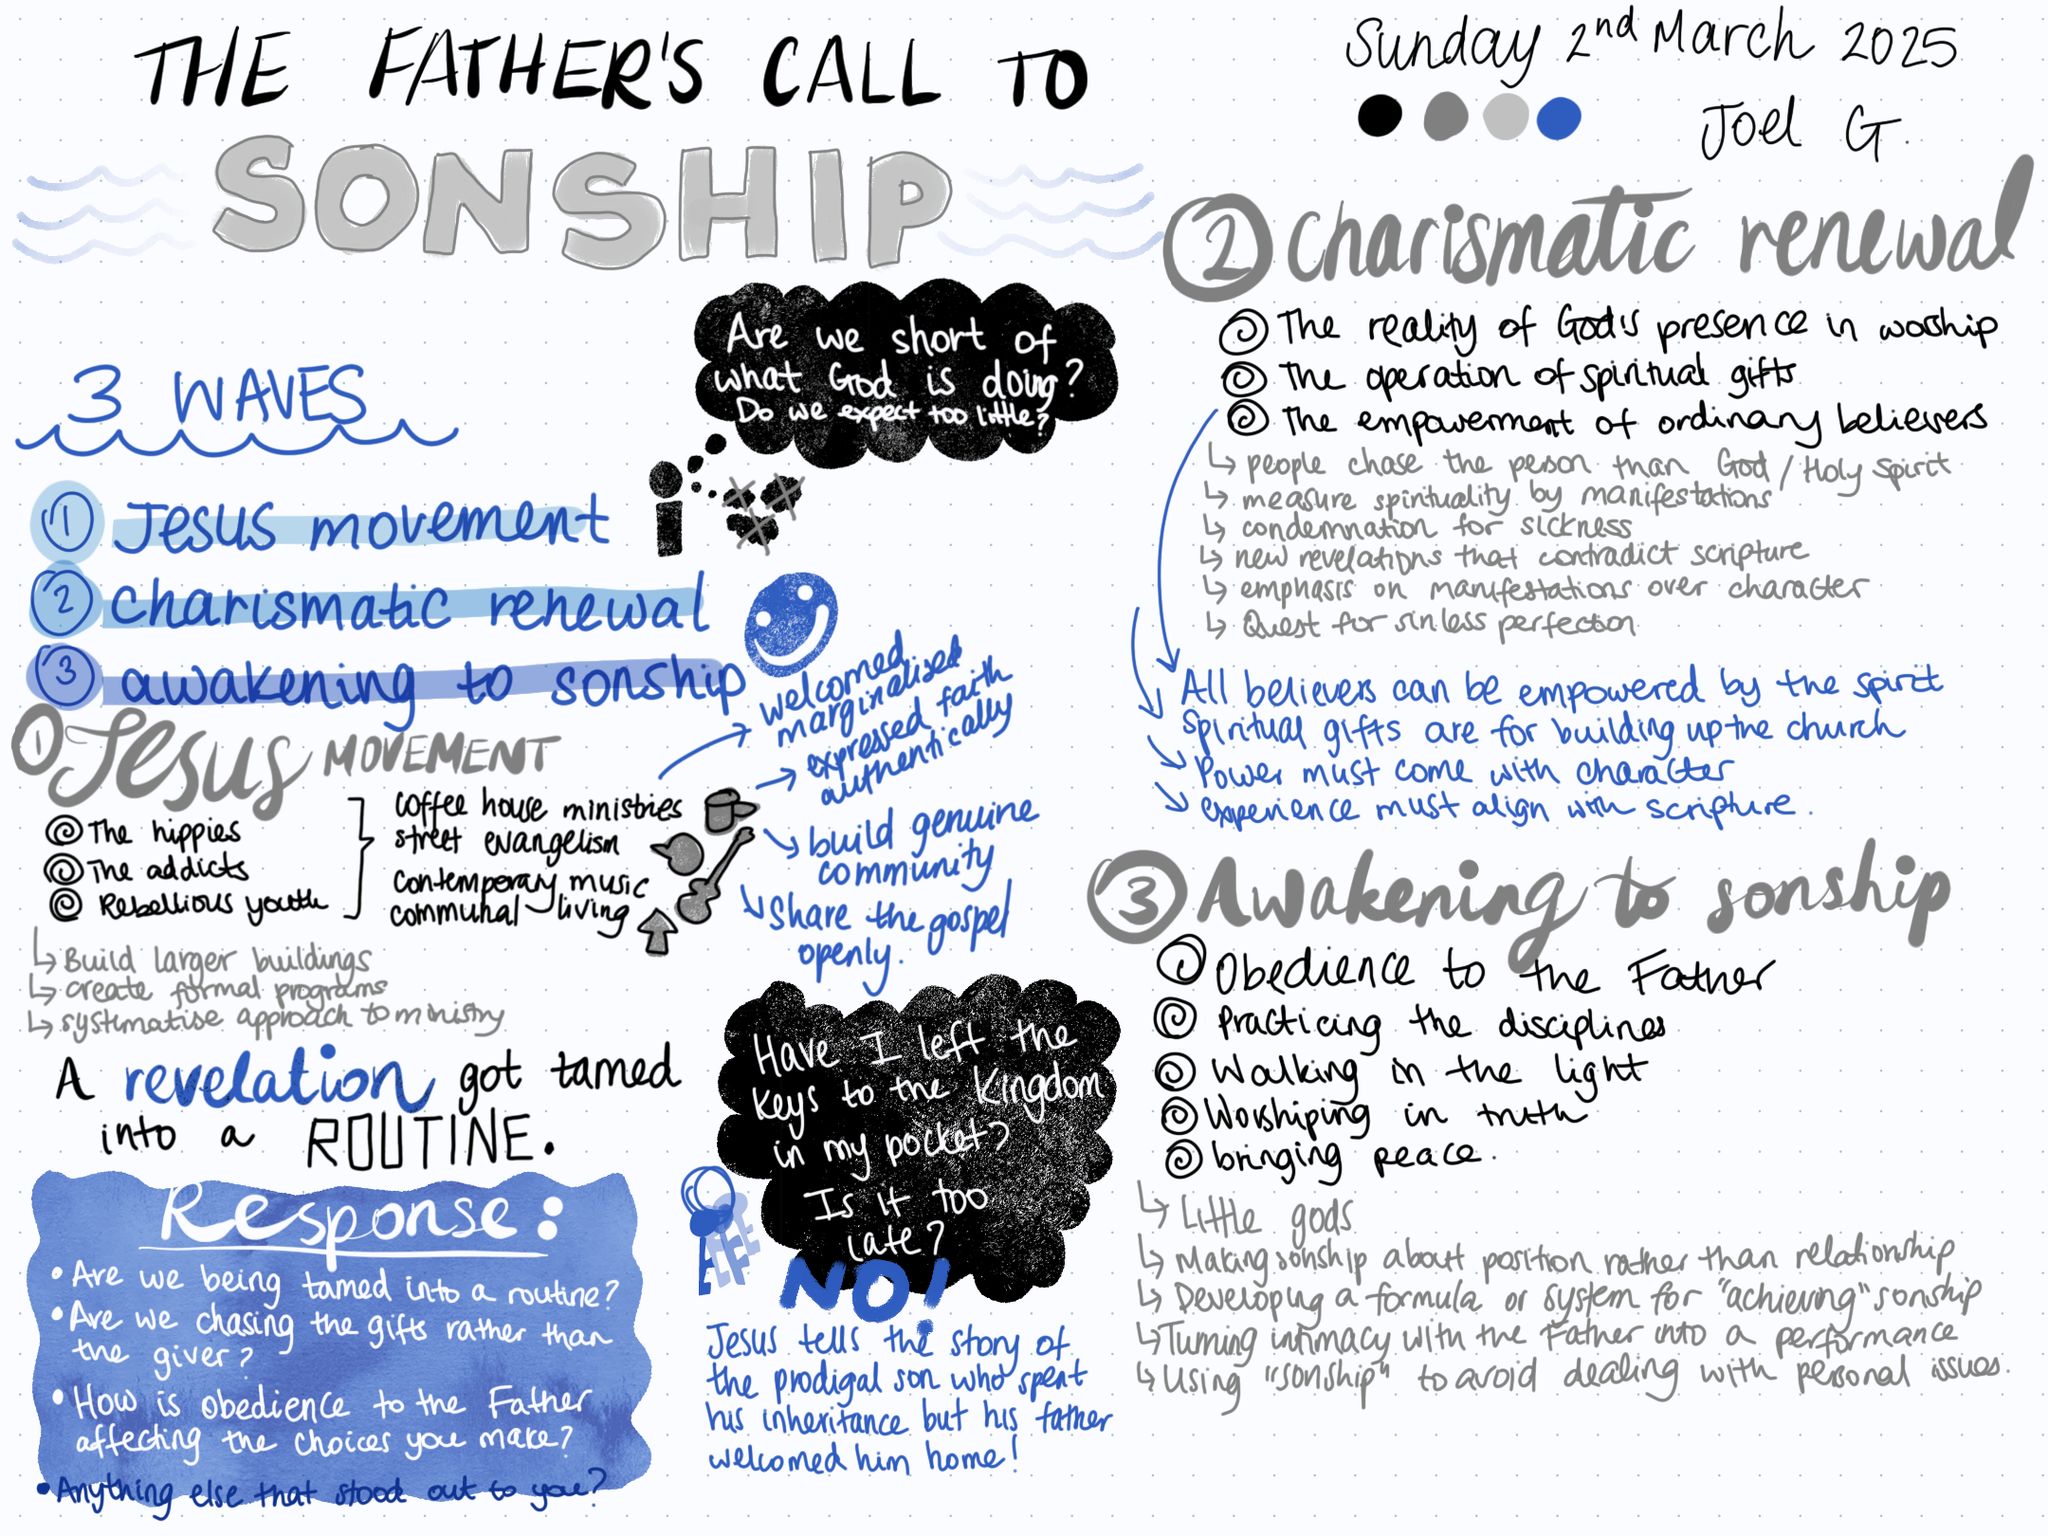 THE FATHER'S CALL TO
SONSHIP
Sunday 2nd March 2025
Joel G.
Are we short of
what God is doing?
Do we expect too little?
3 WAVES
1 Jesus movement
2 charismatic renewal
3 awakening to sonship
1 Jesus MOVEMENT
The hippies
The addicts
Rebellious youth
coffee house ministries
street evangelism
contemporary music
communal living
welcomed
marginalised
expressed faith
authentically
build genuine
community
share the gospel
openly.
Build larger buildings
create formal programs
systematise approach to ministry
A revelation got tamed
into a ROUTINE.
Response:
• Are we being tamed into a routine?
• Are we chasing the gifts rather than
the giver?
• How is obedience to the Father
affecting the choices you make?
• Anything else that stood out to you?
Have I left the
keys to the Kingdom
in my pocket?
Is it too
late?
NO!
Jesus tells the story of
the prodigal son who spent
his inheritance but his father
welcomed him home!
2 charismatic renewal
The reality of God's presence in worship
The operation of spiritual gifts
The empowerment of ordinary believers
people chase the person than God / Holy Spirit
measure spirituality by manifestations
condemnation for sickness
new revelations that contradict scripture
emphasis on manifestations over character
Quest for sinless perfection
All believers can be empowered by the spirit
Spiritual gifts are for building up the church
Power must come with character
experience must align with scripture.
3 Awakening to sonship
Obedience to the Father
Practicing the disciplines
Walking in the light
Worshiping in truth
bringing peace.
Little gods
Making sonship about position rather than relationship
Developing a formula or system for "achieving" sonship
Turning intimacy with the Father into a performance
Using "sonship" to avoid dealing with personal issues.